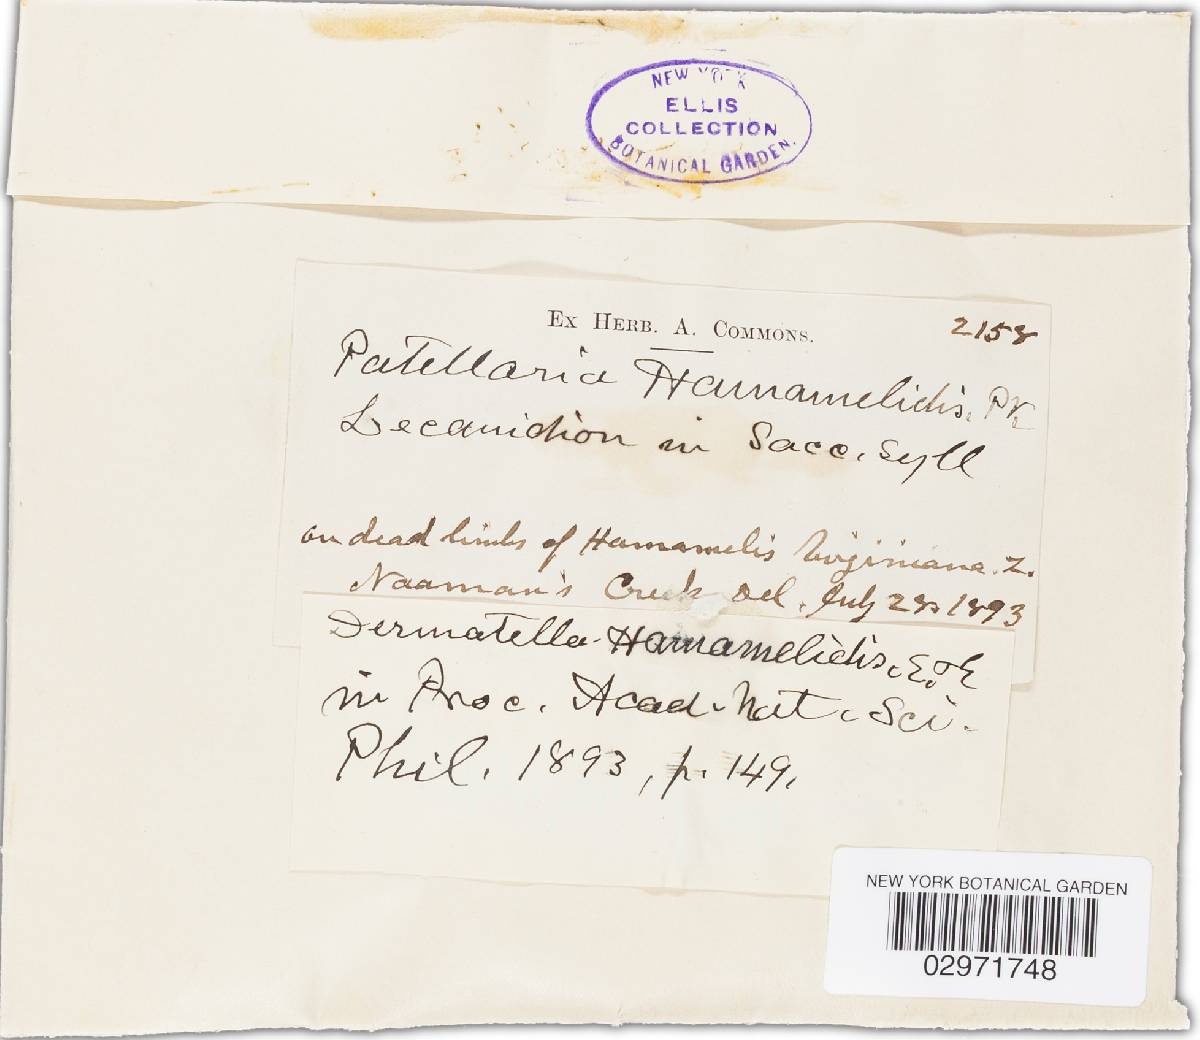 NEW YORK
ELLIS
COLLECTION
BOTANICAL GARDEN.
EX HERB. A. COMMONS.
2158
Patellaria Hamamelidis, Pk,
Lecanidion in Sacc. Syll
on dead limbs of Hamamelis Virginiana. L.
Naaman's Creek Del. July 28, 1893
Dermatella Hamamelidis, E. & E
in Proc. Acad. Nat. Sci.
Phil. 1893, p. 149.
NEW YORK BOTANICAL GARDEN
02971748